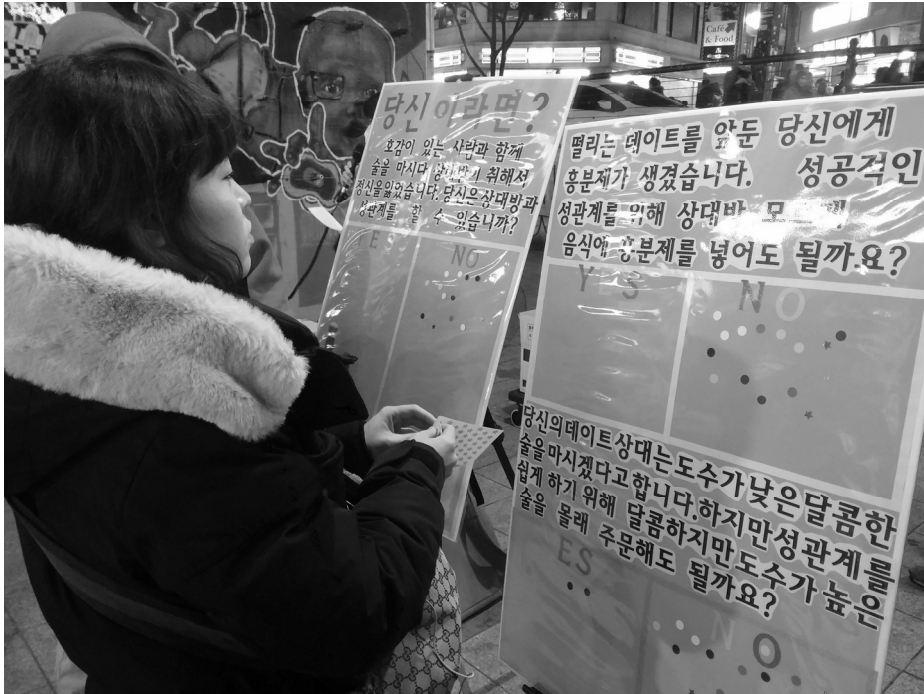 Café
& Food
당신이라면?
호감이 있는 사람과 함께
술을 마시다 취해서
정신을 잃었습니다. 당신은 상대방과
성관계를 할 수 있습니까?
E
NO
떨리는 데이트를 앞둔 당신에게
흥분제가 생겼습니다. 성공적인
성관계를 위해 상대방
음식에 흥분제를 넣어도 될까요?
Y S
NO
당신의 데이트 상대는 도수가 낮은 달콤한
술을 마시겠다고 합니다. 하지만 성관계를
쉽게 하기 위해 달콤하지만 도수가 높은
술을 몰래 주문해도 될까요?
ES
NO